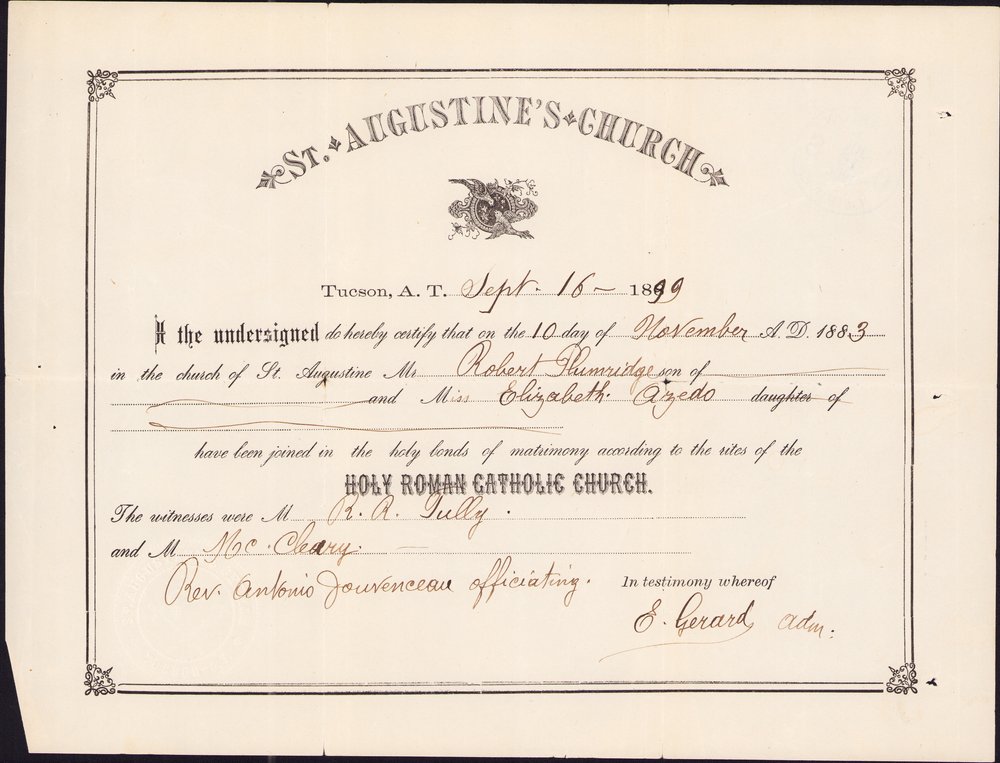 ST. AUGUSTINE'S CHURCH
Tucson, A. T. Sept. 16 - 1899
I the undersigned do hereby certify that on the 10 day of November A. D. 1883
in the church of St. Augustine Mr Robert Plumridge son of
and Miss Elizabeth Azedo daughter of
have been joined in the holy bonds of matrimony according to the rites of the
HOLY ROMAN CATHOLIC CHURCH.
The witnesses were M R. A. Tully.
and M Mc. Cleary.
Rev. Antonio Jouvenceau officiating. In testimony whereof
E. Gerard, adm: